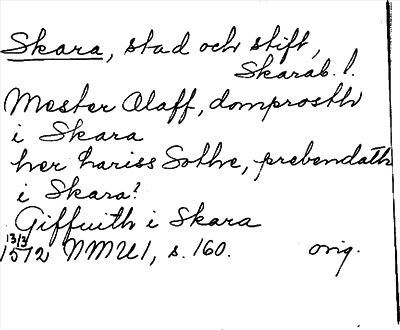 Skara, stad och stift,
Skarab. l.
Mester Olaff, domprosth
i Skara
her hariss Sothe, prebendath
i Skara?
Giffuith i Skara
13/3
1572 NMU I, s. 160. orig.